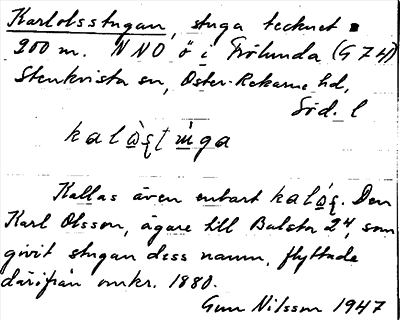 Karlolsstugan, stuga tecknet
200 m. NNO ö i Frölunda (G 74)
Stenkvista sn, Öster-Rekarne hd,
Söd. l
Kallas även enbart kaló̱ʂ. Den
Karl Olsson, ägare till Balsta 2⁴, som
givit stugan dess namn, flyttade
därifrån omkr. 1880.
Gun Nilsson 1947